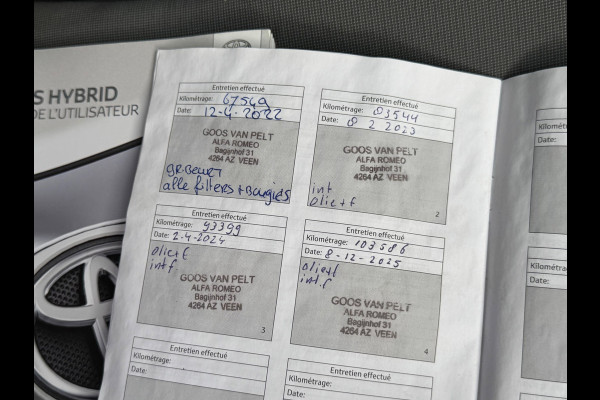 S HYBRID
DE L'UTILISATEUR
Entretien effectué
Kilométrage: 67549
Date: 12-4-2022
GOOS VAN PELT
ALFA ROMEO
Bagijnhof 31
4264 AZ VEEN
GR. Beurt
alle filters + Bougies
Entretien effectué
Kilométrage: 83544
Date: 8 2 2023
GOOS VAN PELT
ALFA ROMEO
Bagijnhof 31
4264 AZ VEEN
int
olie+f
2
Entretien effectué
Kilométrage: 93399
Date: 2-4-2024
olie+f
int f
GOOS VAN PELT
ALFA ROMEO
Bagijnhof 31
4264 AZ VEEN
3
Entretien effectué
Kilométrage: 103586
Date: 8-12-2025
olie+f
int.f
GOOS VAN PELT
ALFA ROMEO
Bagijnhof 31
4264 AZ VEEN
4
Entretien effectué
Kilométrage:
Date:
Entretien effectué
Kilométrage:
Date:
Kilométra
Date:
Kilométrage
Date: